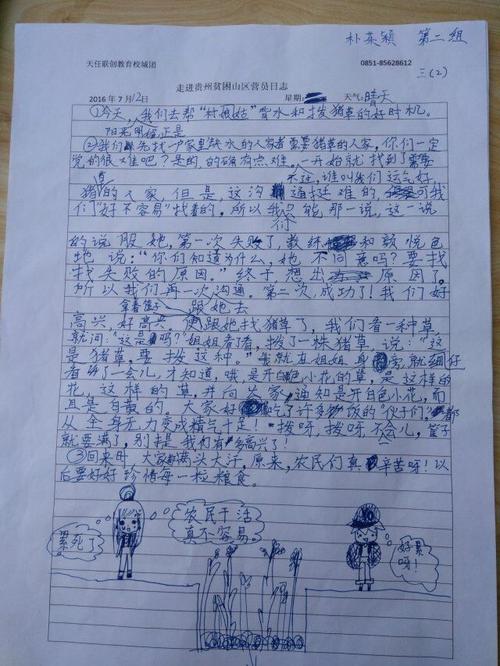 朴英颖 第二组
天任联创教育校城团 0851-85628612
三(2)
走进贵州贫困山区营员日志
2016年7月12日 星期: 天气:晴天
①今天,我们去帮"村姑"背水和拔猪草的好时机。
阳光明媚,正是
②我们先找一户家里缺水的人家或者需要猪草的人家,你们一定
觉的很难吧?是的,的确有点难。一开始就找到了需要
不过,谁叫我们运气好
猪的人家,但是这沟通挺难的,可我
们"好不容易"找着的。所以我们只能,那一说,这一说
的说服她,第一次失败了,教练和颜悦色
地说:"你们知道为什么,她不同意吗?要找
找失败的原因。"终于想出原因了。
所以我们再一次沟通。第二次,成功了!我们好
拿着篮子 跟她去
高兴,好高兴。便跟她找猪草了,我们看一种草,
就问:"这是吗?"姐姐看了看,拔了一株猪草,说:"这
是猪草,要拔这种。"我就在姐姐身旁,就细仔
看了一会儿,才知道哦,是开白色小花的草,是这样的
花,这样的草,并向大家通知是开白色小花,而
且是白黄的。大家好像吃了许多饭的"伙子们"都
从全身无力变成横气十足!拔呀,拔呀,不会儿,篮子
就要满了,别提我们有多高兴了!
③回来时,大家都满头大汗,原来,农民们真辛苦呀!以
后要好好珍惜每一粒粮食。
累死了
农民干活
真不容易
好累
呀!